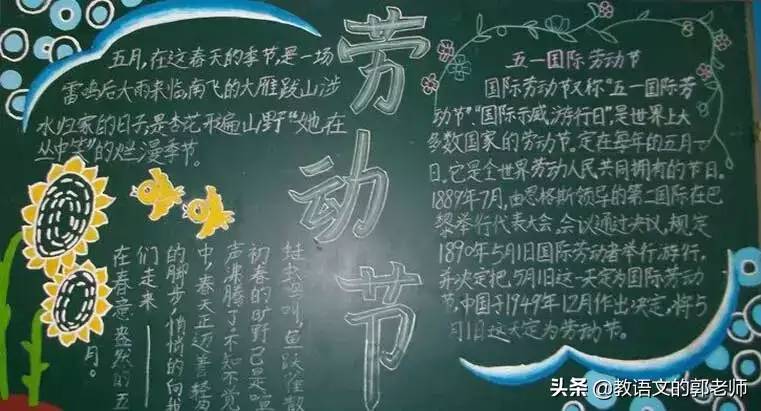 劳动节
五月,在这春天的季节,是一场
雷鸣后大雨来临,南飞的大雁跋山涉
水归家的日子,是杏花开遍山野“她在
丛中笑”的烂漫季节。
鸟叫,鱼跃雀散
初春的旷野已是喧
声沸腾了,不知不觉
中,春天正迈着轻盈
的脚步,悄悄的向我
们走来————
在春意盎然的五
月。
五一国际劳动节
国际劳动节又称“五一国际劳
动节”“国际示威游行日”,是世界上大
多数国家的劳动节。定在每年的五月一
日。它是全世界劳动人民共同拥有的节日。
1889年7月,由恩格斯领导的第二国际在巴
黎举行代表大会。会议通过决议,规定
1890年5月1日国际劳动者举行游行,
并决定把5月1日这一天定为国际劳动
节,中国于1949年12月作出决定,将5
月1日这天定为劳动节。
头条 @教语文的郭老师